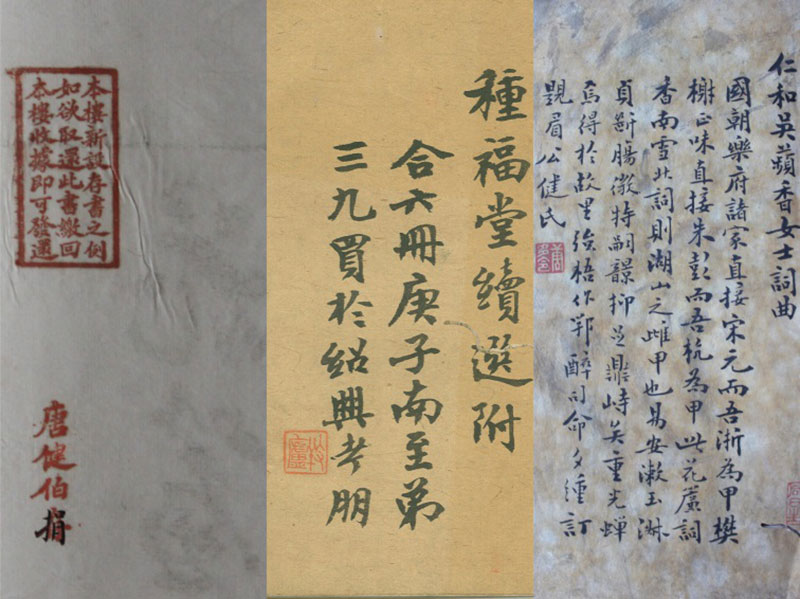 本樓新設存書之例
如欲取還此書繳回
本樓收據即可發還
唐健伯捐
種福堂續選附
合六冊庚子南至弟
三九買於紹興考朋
仁和吳蘋香女士詞曲
國朝樂府諸家直接宋元而吾浙為甲樊
榭正味直接朱彭而吾杭為甲此花簾詞
香南雪北詞則湖山之雌甲也易安漱玉淋
貞斷腸徽特嗣抑並鼎峙矣重光蟬
焉得於故里強梧作鄂醉司命夕緟訂
眉公健民